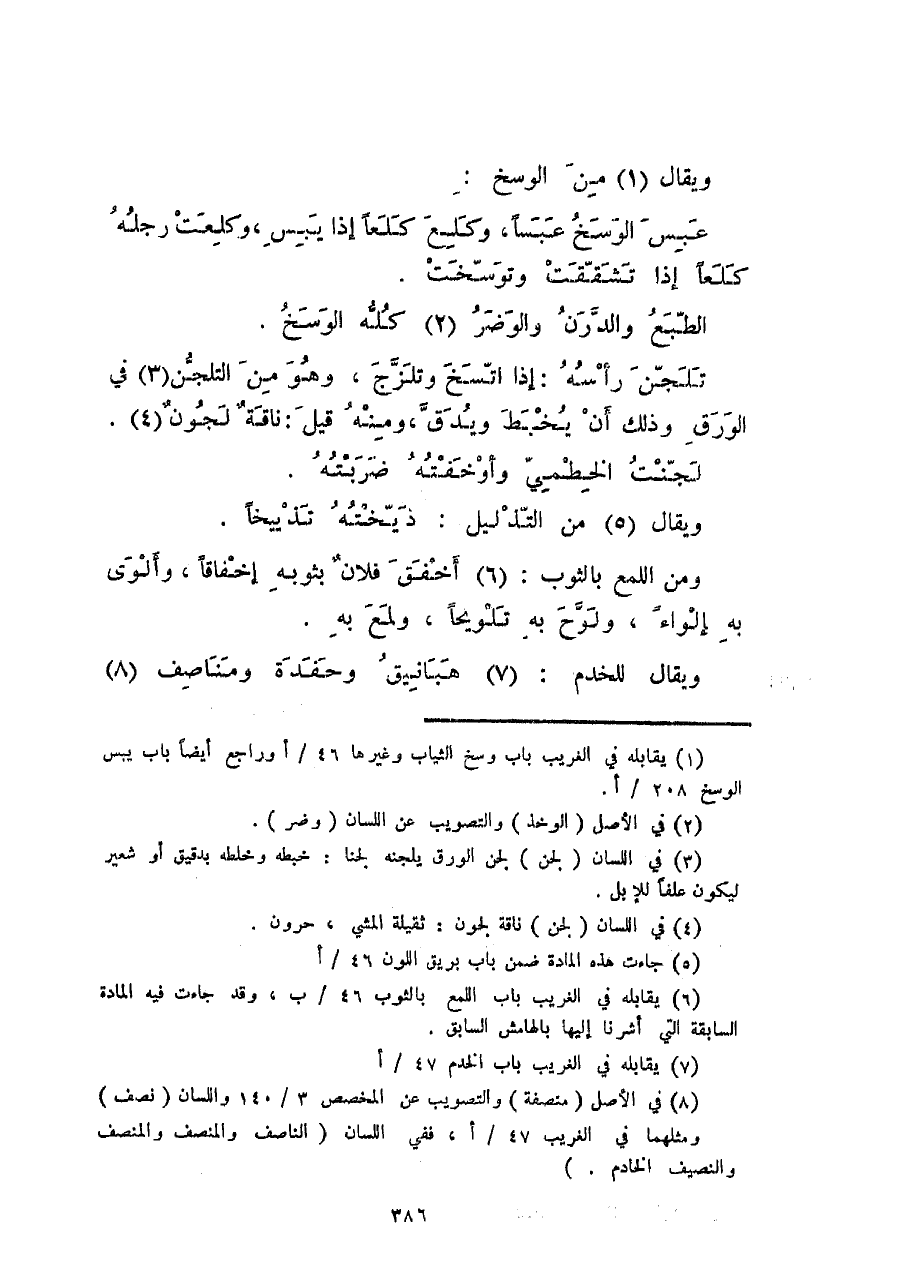 ويقال (١) مِنَ الوسخِ :
عَبِسَ الوَسَخُ عَبَسَاً، وكَلِعَ كَلَعَاً إذا يَبِسِ،وكلِعَتْ رجلُهُ
كَلَعَاً إذا تَشَقَّقَتْ وتوَسّخَتْ .
الطّبَعُ والدَّرَنُ والوَضَرُ (٢) كُلُّه الوَسَخُ .
تَلَجّنَ رأْسُهُ : إذا اتّسَخَ وتلَزَّجَ ، وهُوَ مِنَ التلجُّن(٣) في
الوَرَقِ وذلك أَنْ يُخْبَطَ ويُدَقَّ،ومِنْهُ قيلَ: ناقَةٌ لَجُونٌ(٤) .
لَجّنْتُ الخِطْمِيّ وأوْخَفْتُهُ ضَرَبْتُهُ .
ويقال (٥) من التّذْليل : ذَيّخْتُهُ تَذْييخاً .
ومن اللمع بالثوب : (٦) أَخْفَقَ فلانٌ بثوبهِ إخْفاقاً ، وأَلْوَى
بهِ إلْواءً ، ولَوَّحَ بهِ تَلْويحاً ، ولمَعَ بهِ .
ويقال للخدم : (٧) هَبَانِيقُ وحَفَدَة ومَنَاصِف (٨)
(١) يقابله في الغريب باب وسخ الثياب وغيرها ٤٦ / أ وراجع أيضاً باب يبس
الوسخ ٢٠٨ / أ.
(٢) في الأصل ( الوخذ ) والتصويب عن اللسان ( وضر ) .
(٣) في اللسان ( لجن ) لجن الورق يلجنه لجنا : خبطه وخلطه بدقيق أو شعير
ليكون علفاً للإبل .
(٤) في اللسان ( لجن ) ناقة لجون : ثقيلة المشي ، حرون .
(٥) جاءت هذه المادة ضمن باب بريق اللون ٤٦ / أ
(٦) يقابله في الغريب باب اللمع بالثوب ٤٦ / ب ، وقد جاءت فيه المادة
السابقة التي أشرنا إليها بالهامش السابق .
(٧) يقابله في الغريب باب الخدم ٤٧ / أ
(٨) في الأصل ( منصفة ) والتصويب عن المخصص ٣ / ١٤٠ واللسان ( نصف )
ومثلهما في الغريب ٤٧ / أ ، ففي اللسان ( الناصف والمنصف والمنصف
والنصيف الخادم . )
٣٨٦